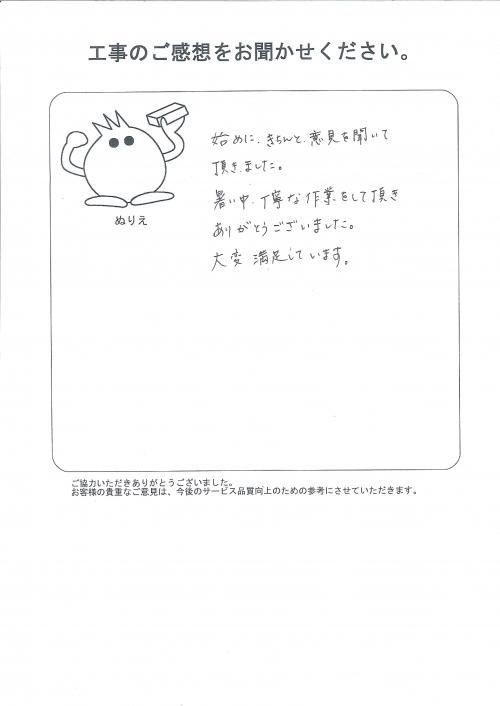 工事のご感想をお聞かせください。
始めに、きちんと、意見を聞いて
頂きました。
暑い中、丁寧な作業をして頂き
ありがとうございました。
大変満足しています。
ぬりえ
ご協力いただきありがとうございました。
お客様の貴重なご意見は、今後のサービス品質向上のための参考にさせていただきます。